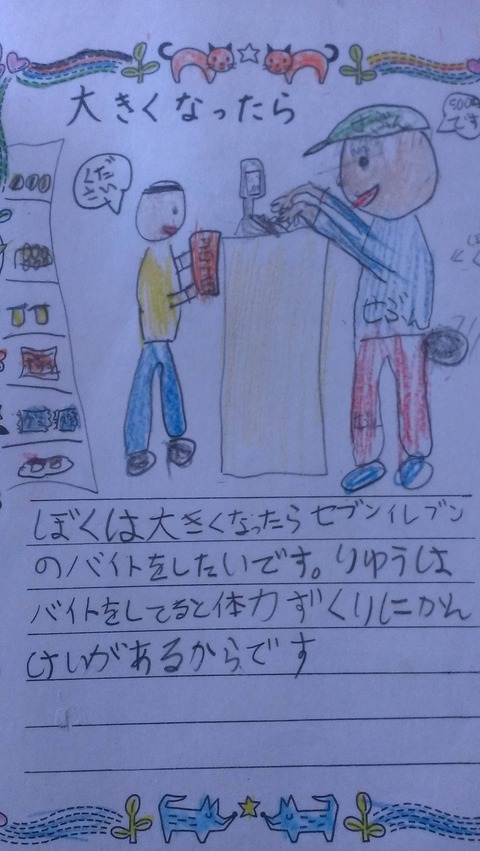 大きくなったら
500円
です
くだ
さい
せぶん
ぼくは大きくなったらセブンイレブン
のバイトをしたいです。りゆうは
バイトをしてると体力ずくりにかん
けいがあるからです